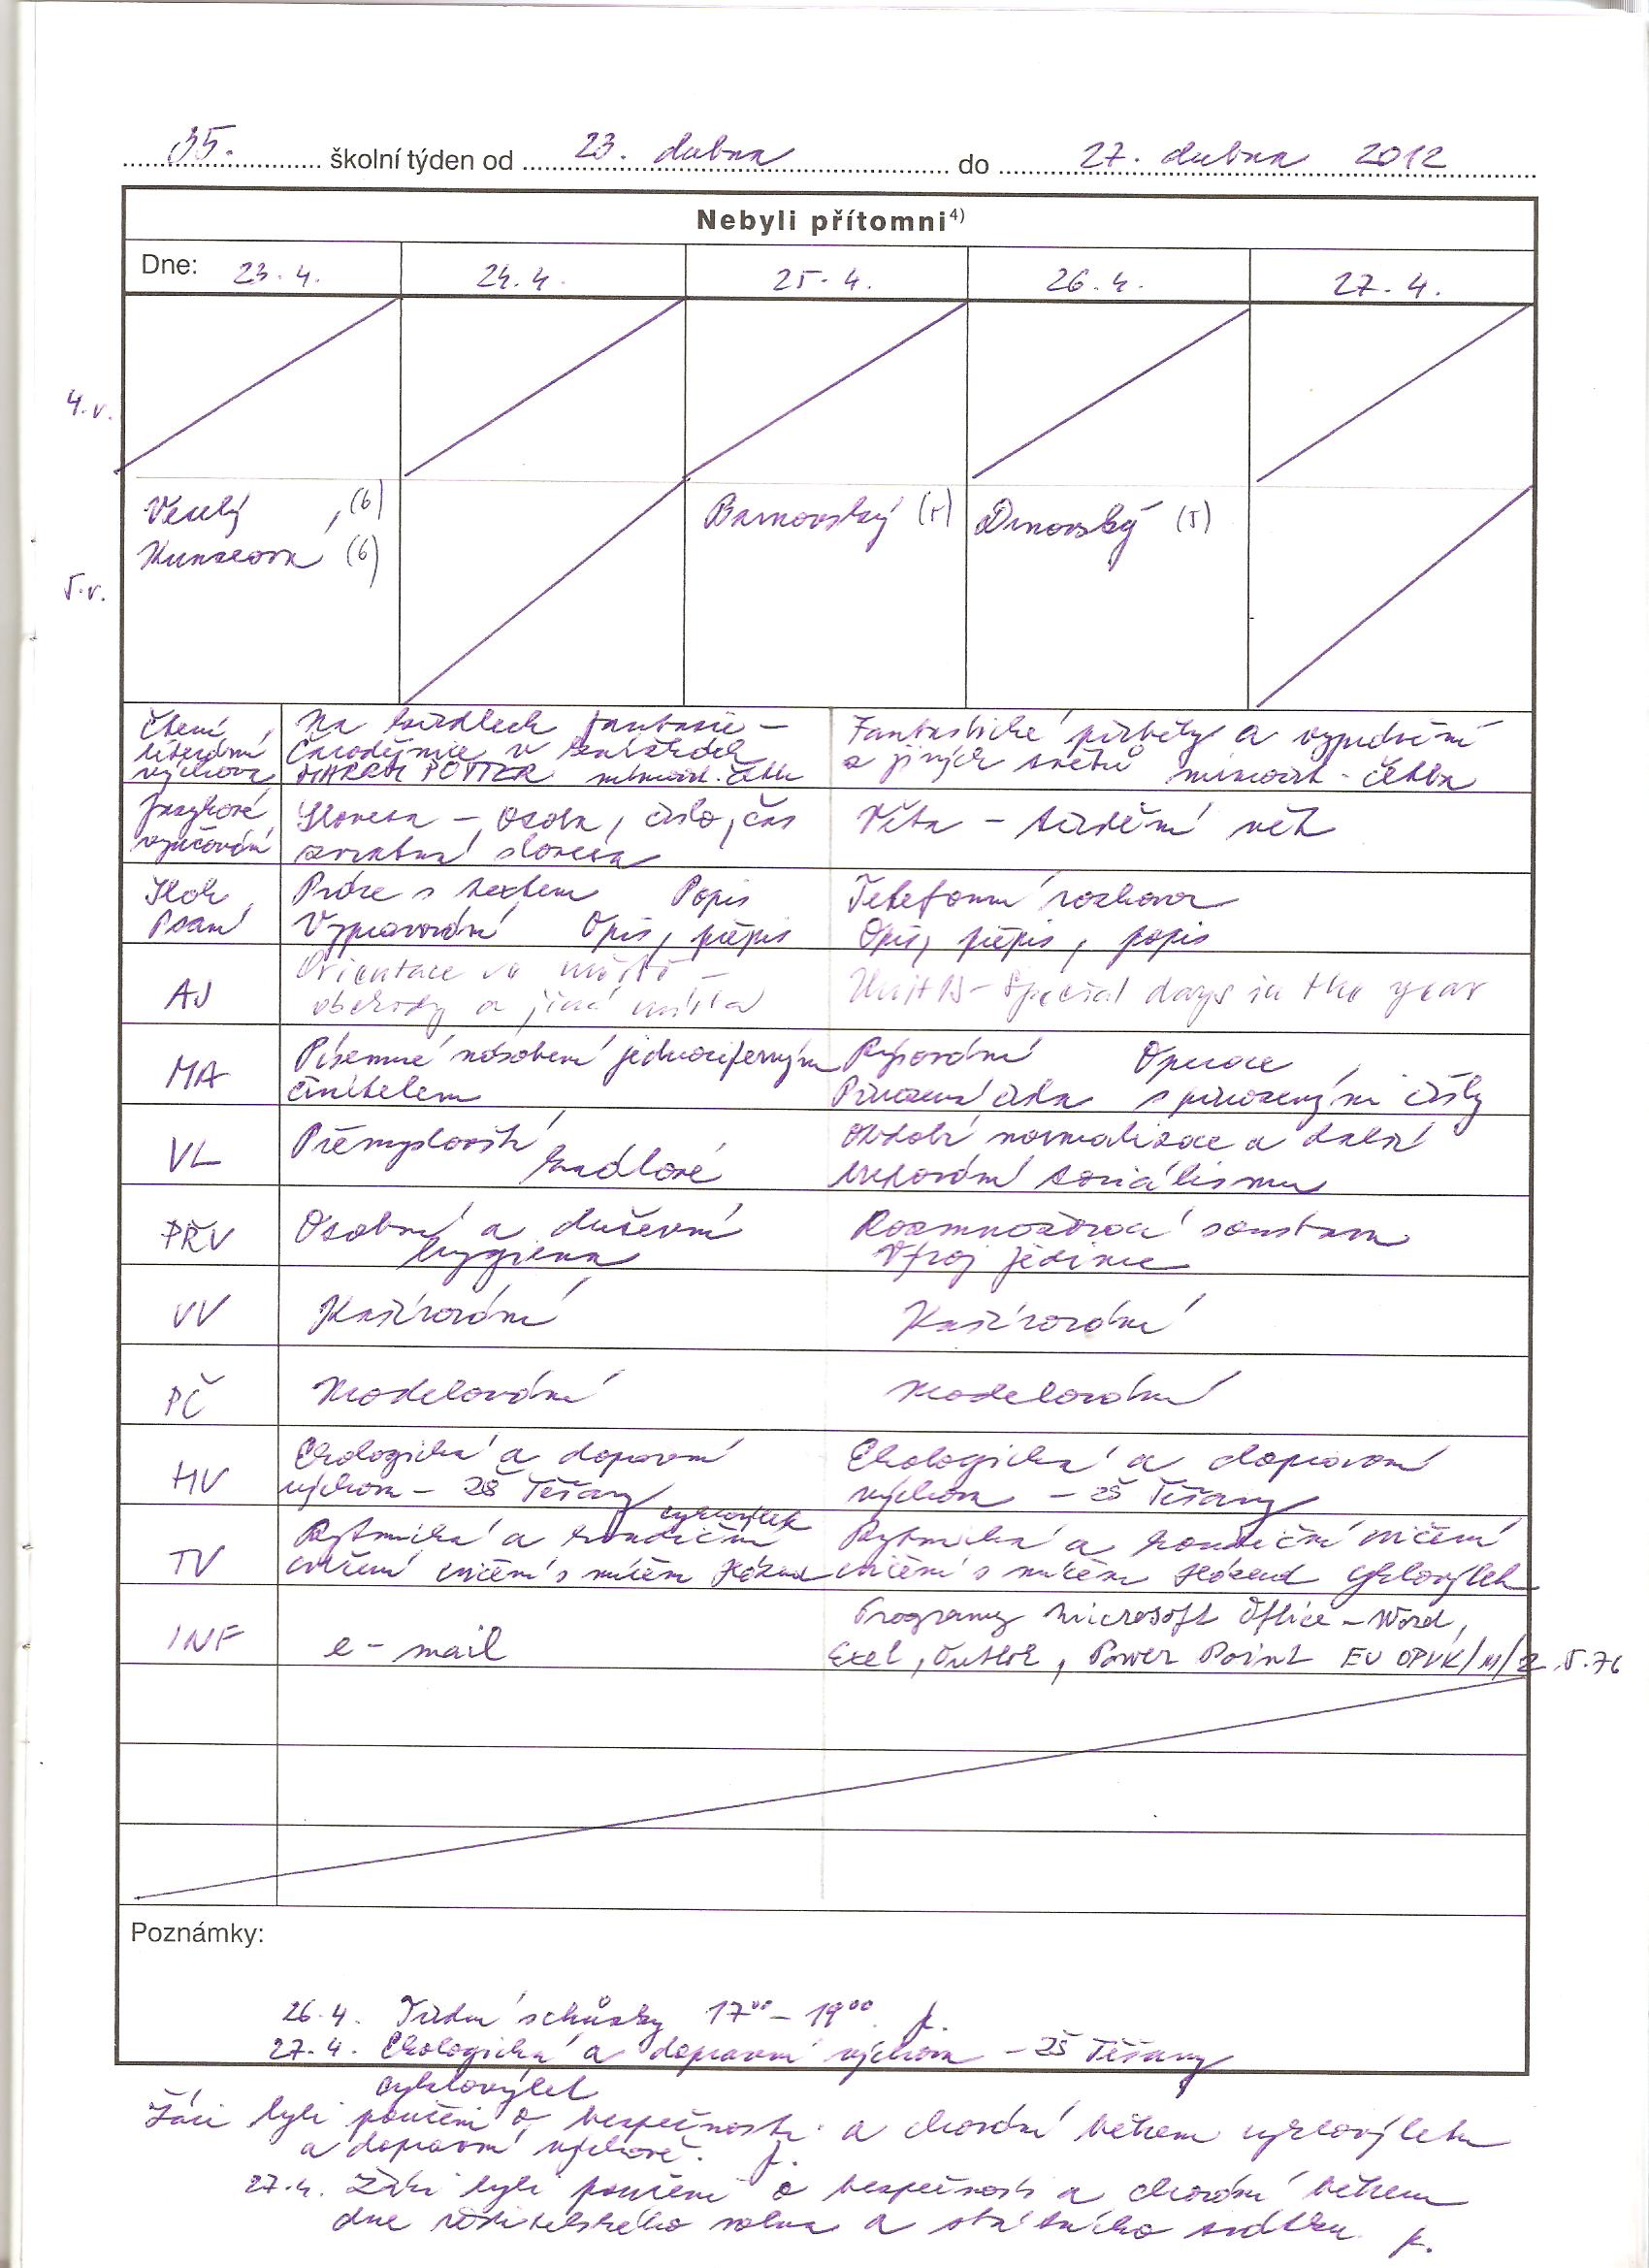 35. školní týden od 23. dubna do 27. dubna 2012
Nebyli přítomni4)
Dne: 23. 4. 24. 4. 25. 4. 26. 4. 27. 4.
4. r.
Veselý (6) Barnovský (5) Drnovský (5)
(6)
5. r.
Čtení, Na křídlech fantasie – Fantastické příběhy a vyprávění
literární Čarodějnice v z jiných světů mimočít. četba
výchova HARRY POTTER mimočít. četba
Jazykové Slovesa – osoba, číslo, čas Věta – vět
vyučování zvratná slovesa
Sloh, Práce s textem Popis Telefonní rozhovor
Psaní Vypravování Opis, přepis Opis, přepis, popis
AJ Orientace ve městě – Unit 15 – Special days in the year
obchody a jiná místa
MA Písemné násobení jednociferným Rýsování Operace
činitelem Přirozená čísla s přirozenými čísly
VL Přemyslovští Období normalizace a další
budování socialismu
PŘV Osobní a duševní Rozmnožovací soustava
hygiena Vývoj jedince
VV Kašírování Kašírování
PČ Modelování Modelování
HV Ekologická a dopravní Ekologická a dopravní
výchova – ZŠ Těšany výchova – ZŠ Těšany
cyklovýlet
TV Rytmická a kondiční Rytmická a kondiční cvičení
cvičení cvičení s míčem cvičení s míčem cyklovýlet
INF e-mail Programy Microsoft Office – Word,
Exel, Outlok, Power Point EU OPVK/M/2.5.76
Poznámky:
26. 4. Třídní schůzky 17 00 – 19 00.
27. 4. Ekologická a dopravní výchova – ZŠ Těšany
cyklovýlet
Žáci byli poučeni o bezpečnosti a chování během cyklovýletu
a dopravní výchově.
27. 4. Žáci byli poučeni o bezpečnosti a chování během
dne ředitelského volna a státního svátku